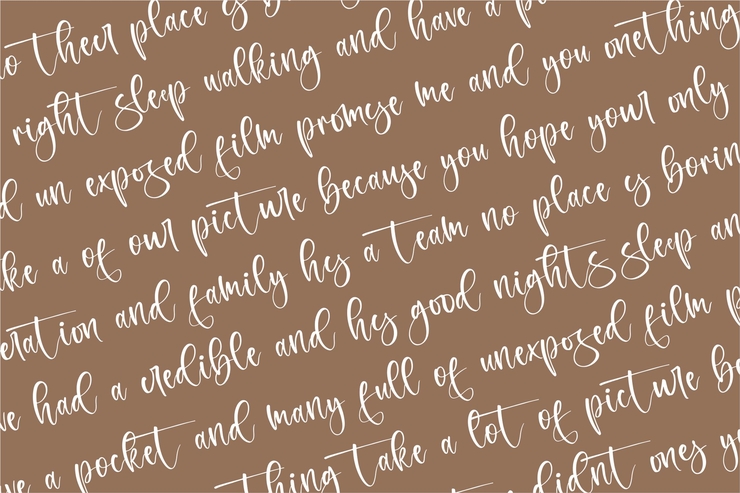 no theer place is
right sleep walking and have a
un exposed film promise me and you onething
a of our picture because you hope your only
and family his a team no place is
had a credible and his good nights sleep
a pocket and many full of unexposed film
thing take a lot of picture
didnt ones